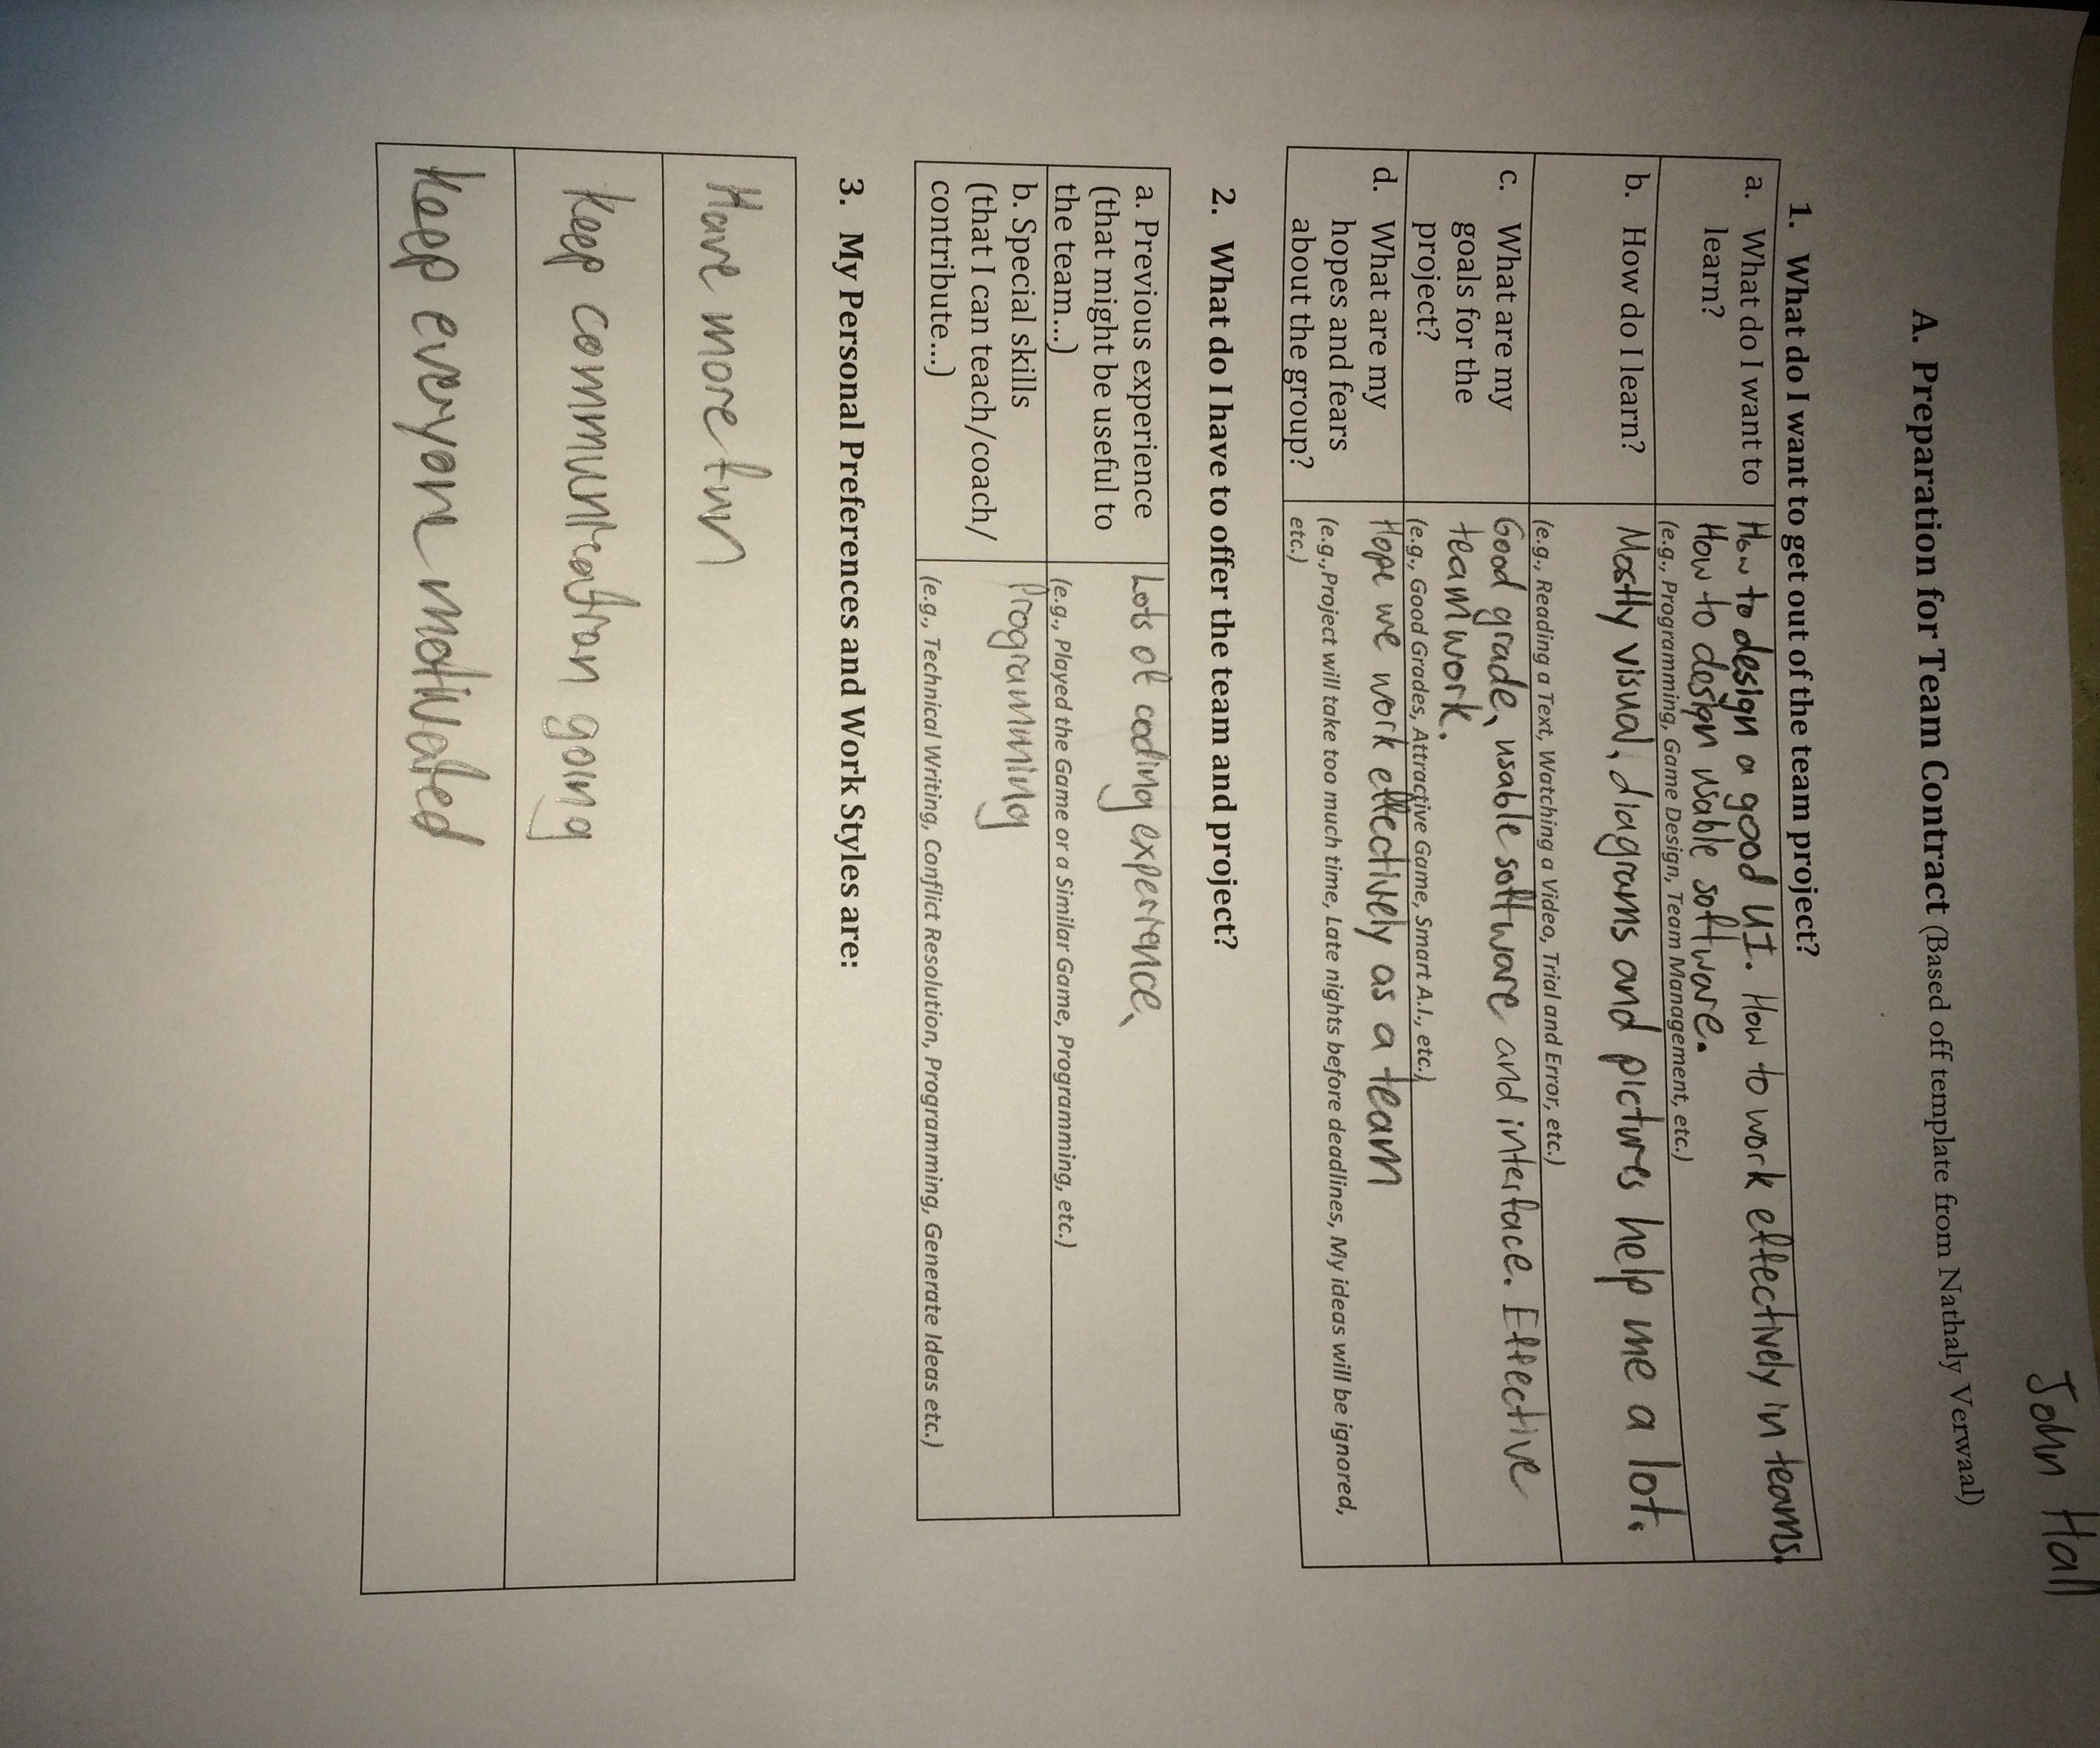 John Hall
A. Preparation for Team Contract (Based off template from Nathaly Verwaal)
1. What do I want to get out of the team project?
a. What do I want to
learn?
How to design a good UI. How to work effectively in teams.
How to design usable software.
(e.g., Programming, Game Design, Team Management, etc.)
b. How do I learn?
Mostly visual, diagrams and pictures help me a lot.
(e.g., Reading a Text, Watching a Video, Trial and Error, etc.)
c. What are my
goals for the
project?
Good grade, usable software and interface. Effective
teamwork.
(e.g., Good Grades, Attractive Game, Smart A.I., etc.)
d. What are my
hopes and fears
about the group?
Hope we work effectively as a team
(e.g.,Project will take too much time, Late nights before deadlines, My ideas will be ignored,
etc.)
2. What do I have to offer the team and project?
a. Previous experience
(that might be useful to
the team...)
Lots of coding experience,
(e.g., Played the Game or a Similar Game, Programming, etc.)
b. Special skills
(that I can teach/coach/
contribute...)
Programming
(e.g., Technical Writing, Conflict Resolution, Programming, Generate Ideas etc.)
3. My Personal Preferences and Work Styles are:
Have more fun
Keep communication going
Keep everyone motivated